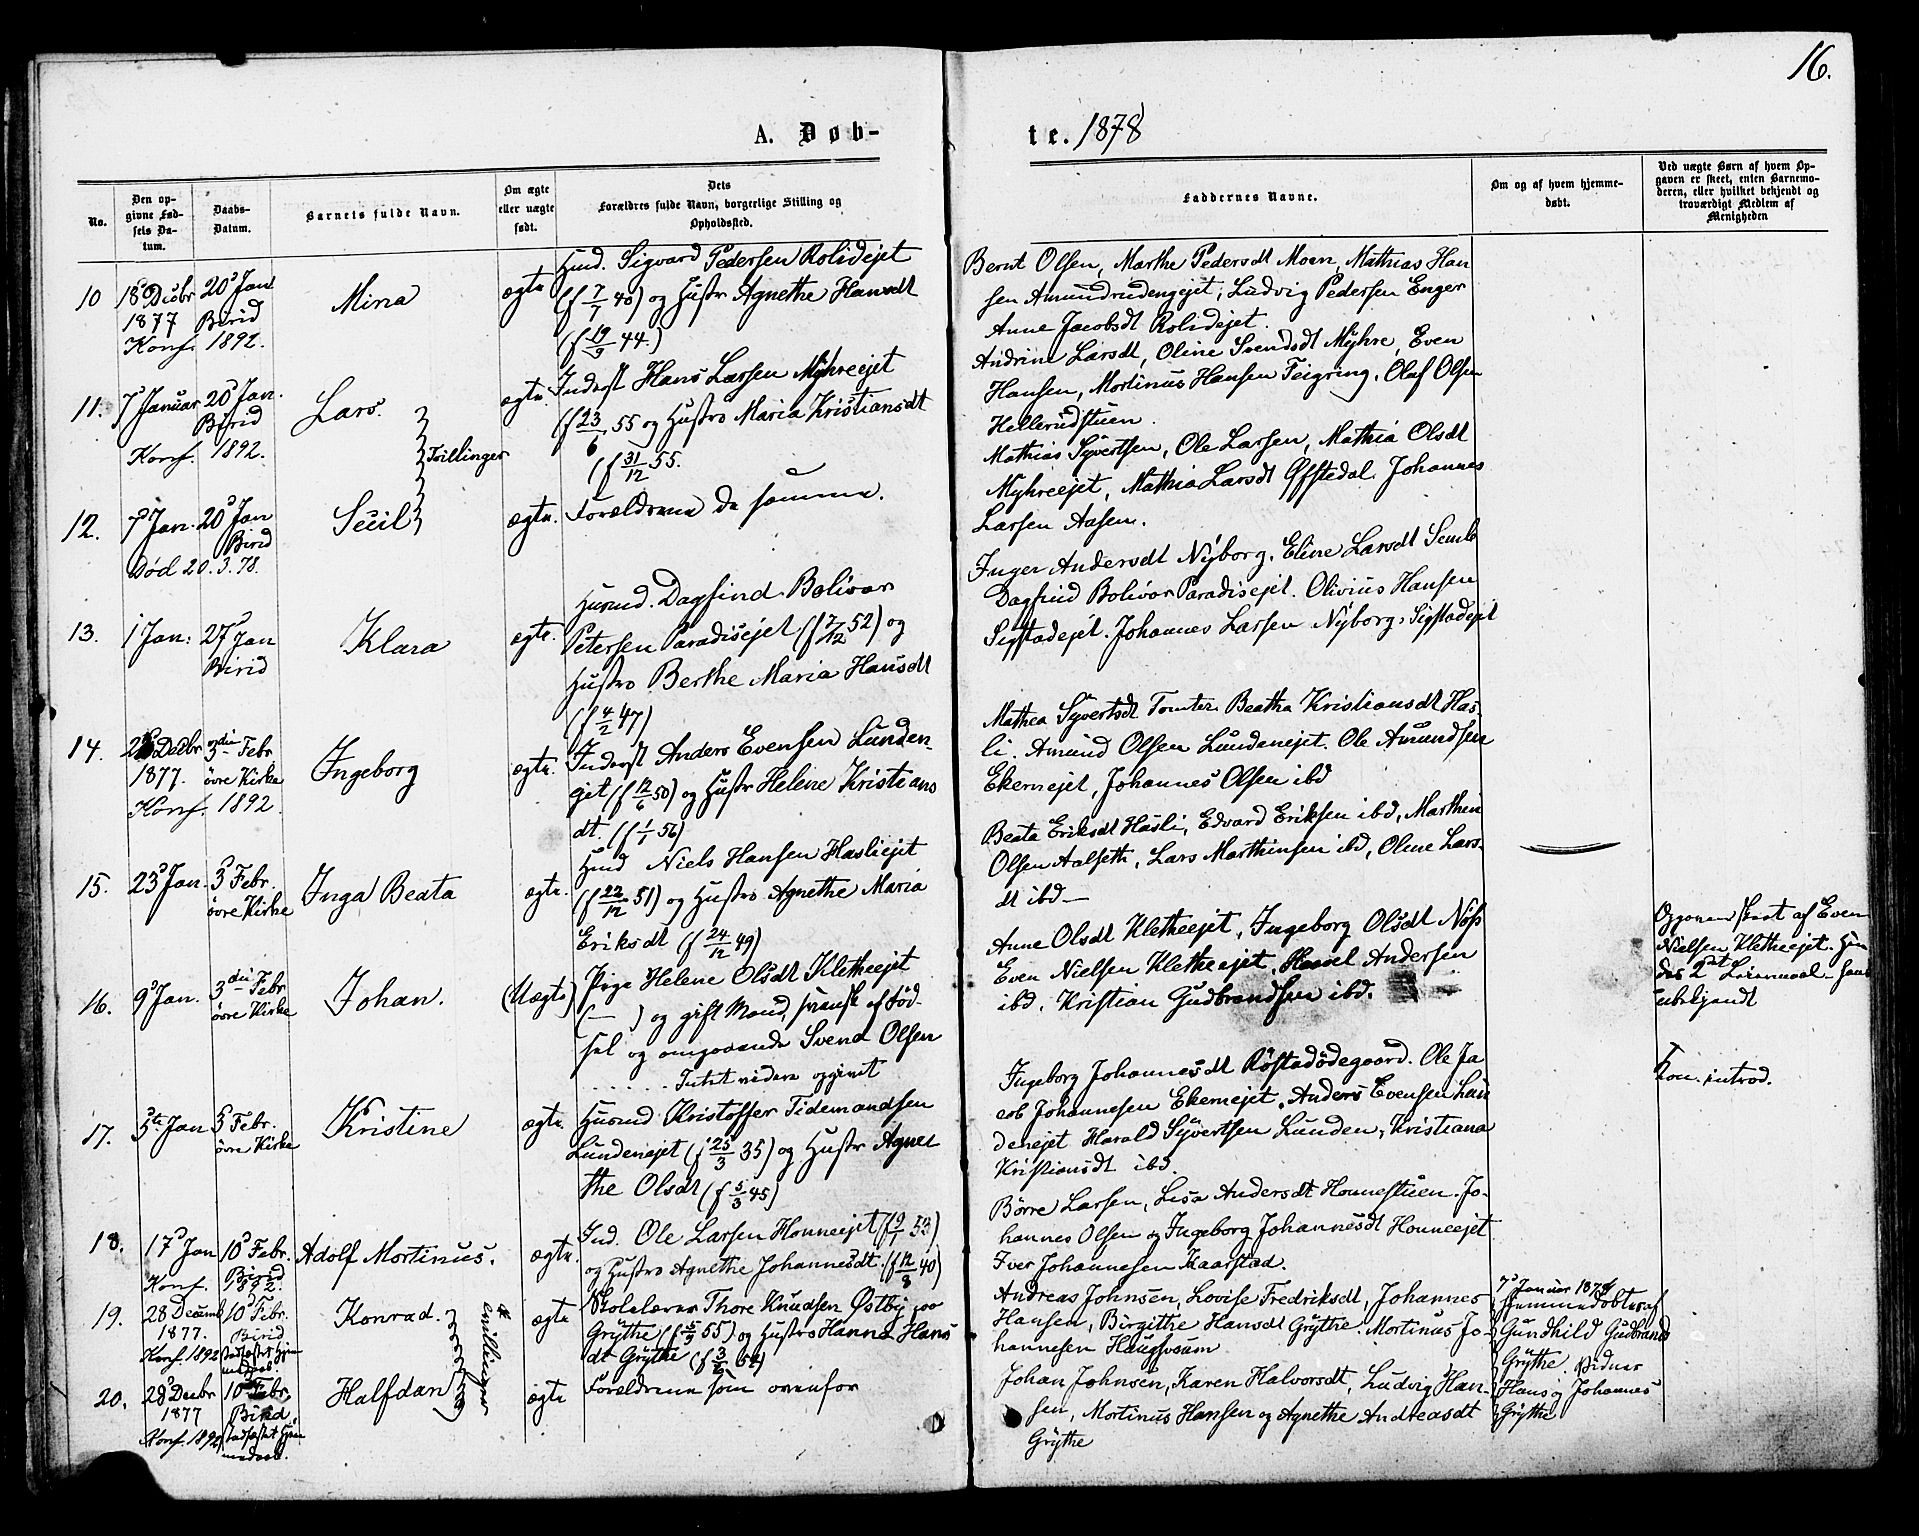 16.
A. Døb-
te. 1878
No.
Den op-
givne Fød-
sels Da-
tum.
Daabs-
Datum.
Barnets fulde Navn.
Om ægte
eller uægte
født.
Dets
Forældres fulde Navn, borgerlige Stilling og
Opholdssted.
Faddernes Navne.
Om og af hvem hjemme-
døbt.
Ved uægte Børn af hvem Op-
gaven er skeet, enten Barnemo-
deren, eller hvilket bekjendt og
troværdigt Medlem af
Menigheden
10
18 Decbr
1877
Konf. 1892.
20 Jan
Birid
Mina
ægte
Husd. Sigvard Pedersen Rolidejet
(f 7/7 48) og Hustr Agnethe Hansdt
(f 19/9 44.)
Bernt Olsen, Marthe Pedersdt Moen, Mathias Han
sen Amundrudengejet; Ludvig Pedersen Enger
Anne Jacobsdt Rolidejet.
11.
7 Januar
Konf. 1892.
20 Jan.
Birid
Lars.
Tvillinger
ægte.
Inderst Hans Larsen Myhreejet
(f 23/6 55 og Hustro Maria Kristiansdt
(f 31/12 55.
Andrine Larsdt, Oline Svendsdt Myhre, Even
Hansen, Mortinus Hansen Feigring. Olaf Olsen
Hellerudstuen.
12.
7 Jan.
Død 20.3.78.
20 Jan
Birid
Secil
ægte.
Forældrene de samme.
Mathias Syvertsen, Ole Larsen, Mathia Olsdt
Myhreejet, Mathia Larsdt Øfstedal. Johannes
Larsen Aasen.
13.
1 Jan:
27 Jan
Birid
Klara
ægte.
Husmd. Dagfind Bolivar
Petersen Paradisejet (f 7/12 52) og
Hustro Berthe Maria Hansdt
(f 4/2 47)
Inger Andersdt Nyborg, Eline Larsdt Semb
Dagfind Bolivar Paradisejet. Olivius Hansen
Sigstadejet. Johannes Larsen Nyborg, Sigstadejet
14.
Decbr
1877.
Konf. 1892.
3die Febr
øvre Kirke
Ingeborg
ægte.
Inderst Anders Evensen Lunden-
get (f 12/6 50) og Hustr Helene Kristians
dt. (f 1/1 56)
Mathea Syvertsdt Tomter Beatha Kristiansdt Has-
li. Amund Olsen Lundenejet. Ole Amundsen
Ekernejet, Johannes Olsen ibd
15.
23 Jan.
3 Febr.
øvre Kirke
Inga Beata
ægte.
Husd Niels Hansen Hasliejet
(f 22/12 51) og Hustro Agnethe Maria
Eriksdt (f 24/12 49)
Beata Eriksdt Hasli, Edvard Eriksen ibd, Marthin
Olsen Aalseth, Lars Marthinsen ibd, Oline Lars
dt ibd —
16.
9 Jan.
3die Febr
øvre Kirke
Johan.
(Uægte)
Pige Helene Olsdt Kletheejet
(— ) og gift Mand, svensk af Fød-
sel og omgaaende Svend Olsen
. . . . . . Intet videre opgivet
Anne Olsdt Kletheejet, Ingeborg Olsdt Nøss
Even Nielsen Kletheejet, Andersen
ibd, Kristian Gudbrandsen ibd.
Opgaven skeet af Even
Nielsen Kletheejet. Hen
des 2det Leiermaal – hans
ubekjendt
Kon. introd.
17.
5te Jan
3 Febr.
øvre Kirke
Kristine
ægte.
Husmd Kristoffer Tidemandsen
Lundenejet (f 25/3 35) og Hustr Agne
the Olsdt (f 5/3 45)
Ingeborg Johannesdt Røstadødegaard. Ole Ja
cob Johannesen Ekernejet. Anders Evensen Lun
denejet Harald Syvertsen Lunden, Kristiana
Kristiansdt ibd.
18.
17 Jan
Konf. 1892.
10 Febr.
Birid
Adolf Mortinus.
ægte.
Ind. Ole Larsen Honneejet (f 9/1 53)
og Hustro Agnethe Johannesdt. (f 12/8 40)
Börre Larsen, Lisa Andersdt Honnestuen. Jo-
hannes Olsen og Ingeborg Johannesdt Honneejet
Iver Johannesen Kaarstad.
19.
28 Decemb
1877.
Konf. 1892
10 Febr.
Birid
stadfæstet Hjem
medaab.
Konrad.
Tvillinger
ægte
Skolelærer Thore Knudsen Østby paa
Grythe (f 5/9 55) og Hustro Hanna Hans
dt Grythe (f
Andreas Johnsen, Lovise Fredriksdt, Johannes
Hansen, Birgitthe Hansdt Grythe. Mortinus Jo-
hannesen Haugsveen
7 Januar 1878
Hjemmedøbte af
Gundhild Gudbrand
Grythe Vidner
Hans og Johannes
Grythe
20.
28 Decbr
1877
Konf. 1892
10 Febr,
Birid
stadfæstet Hjem
medaab.
Halfdan
ægte
Forældrene som ovenfor
Johan Johnsen, Karen Halvorsdt, Ludvig Han-
sen, Mortinus Hansen og Agnethe Andreasdt
Grythe